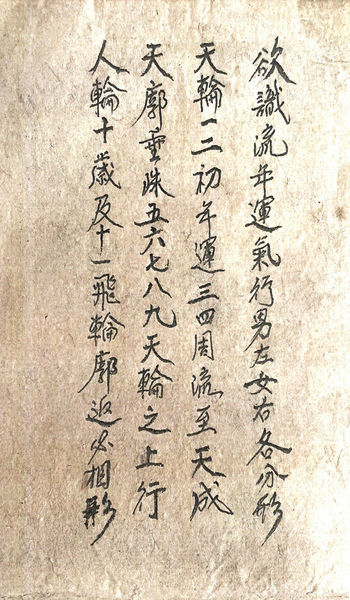 欲識流年運氣行男左女右各分形
天輪一二初年運三四周流至天成
天廓垂珠五六七八九天輪之上行
人輪十歲及十一飛輪廓返必相形